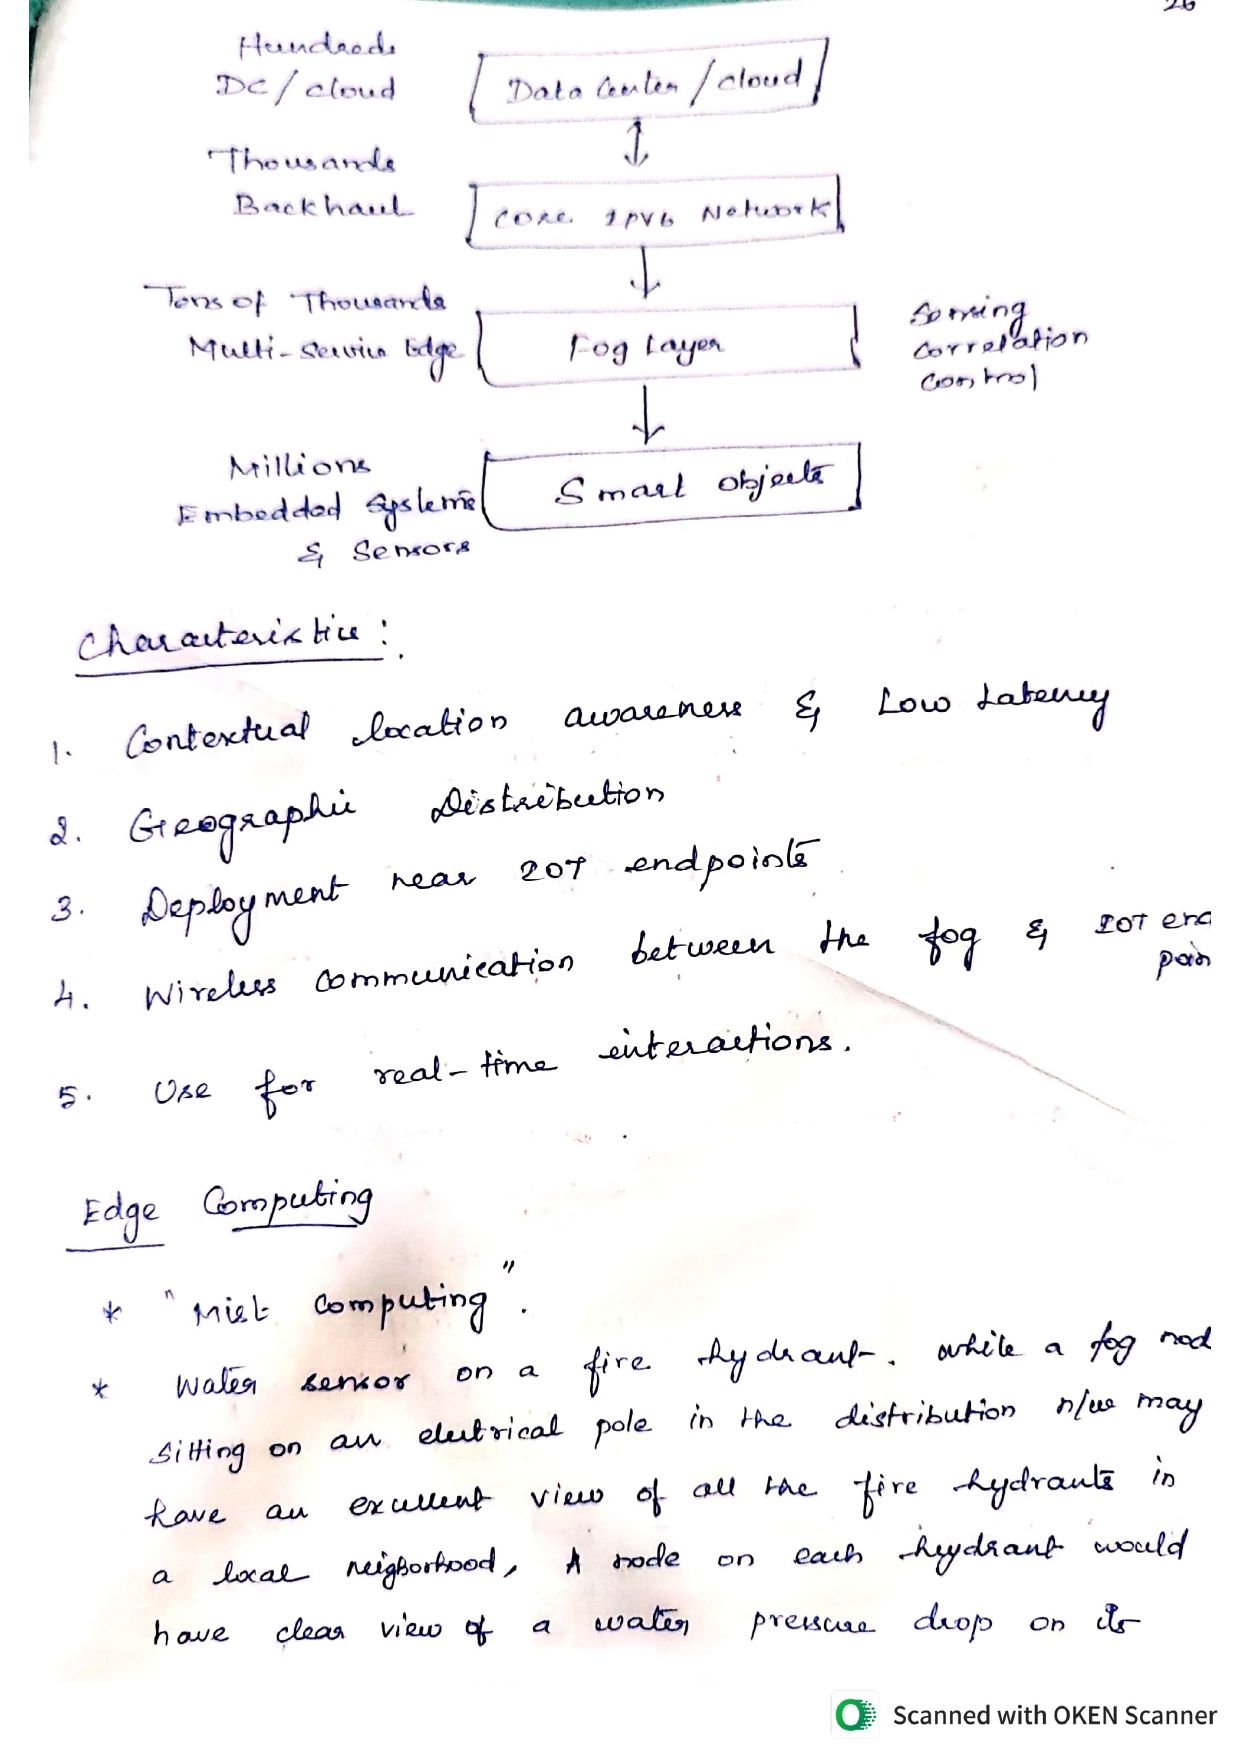 26
Hundreds
DC/cloud
Data Center/cloud
Thousands
Backhaul
Core IPV6 Network
Tens of Thousands
Multi-Service Edge
Fog Layer
Sensing
Correlation
Control
Millions
Embedded Systems
& Sensors
Smart objects
Characteristics:
1. Contextual location awareness & Low Latency
2. Geographic Distribution
3. Deployment near IOT endpoints
4. Wireless communication between the fog & IOT end
poin
5. Use for real-time interactions.
Edge Computing
* "Mist Computing".
* Water sensor on a fire hydrant. while a fog nod
sitting on an electrical pole in the distribution n/w may
have an excellent view of all the fire hydrants in
a local neigborhood, A node on each hydrant would
have clear view of a water pressure drop on its
Scanned with OKEN Scanner